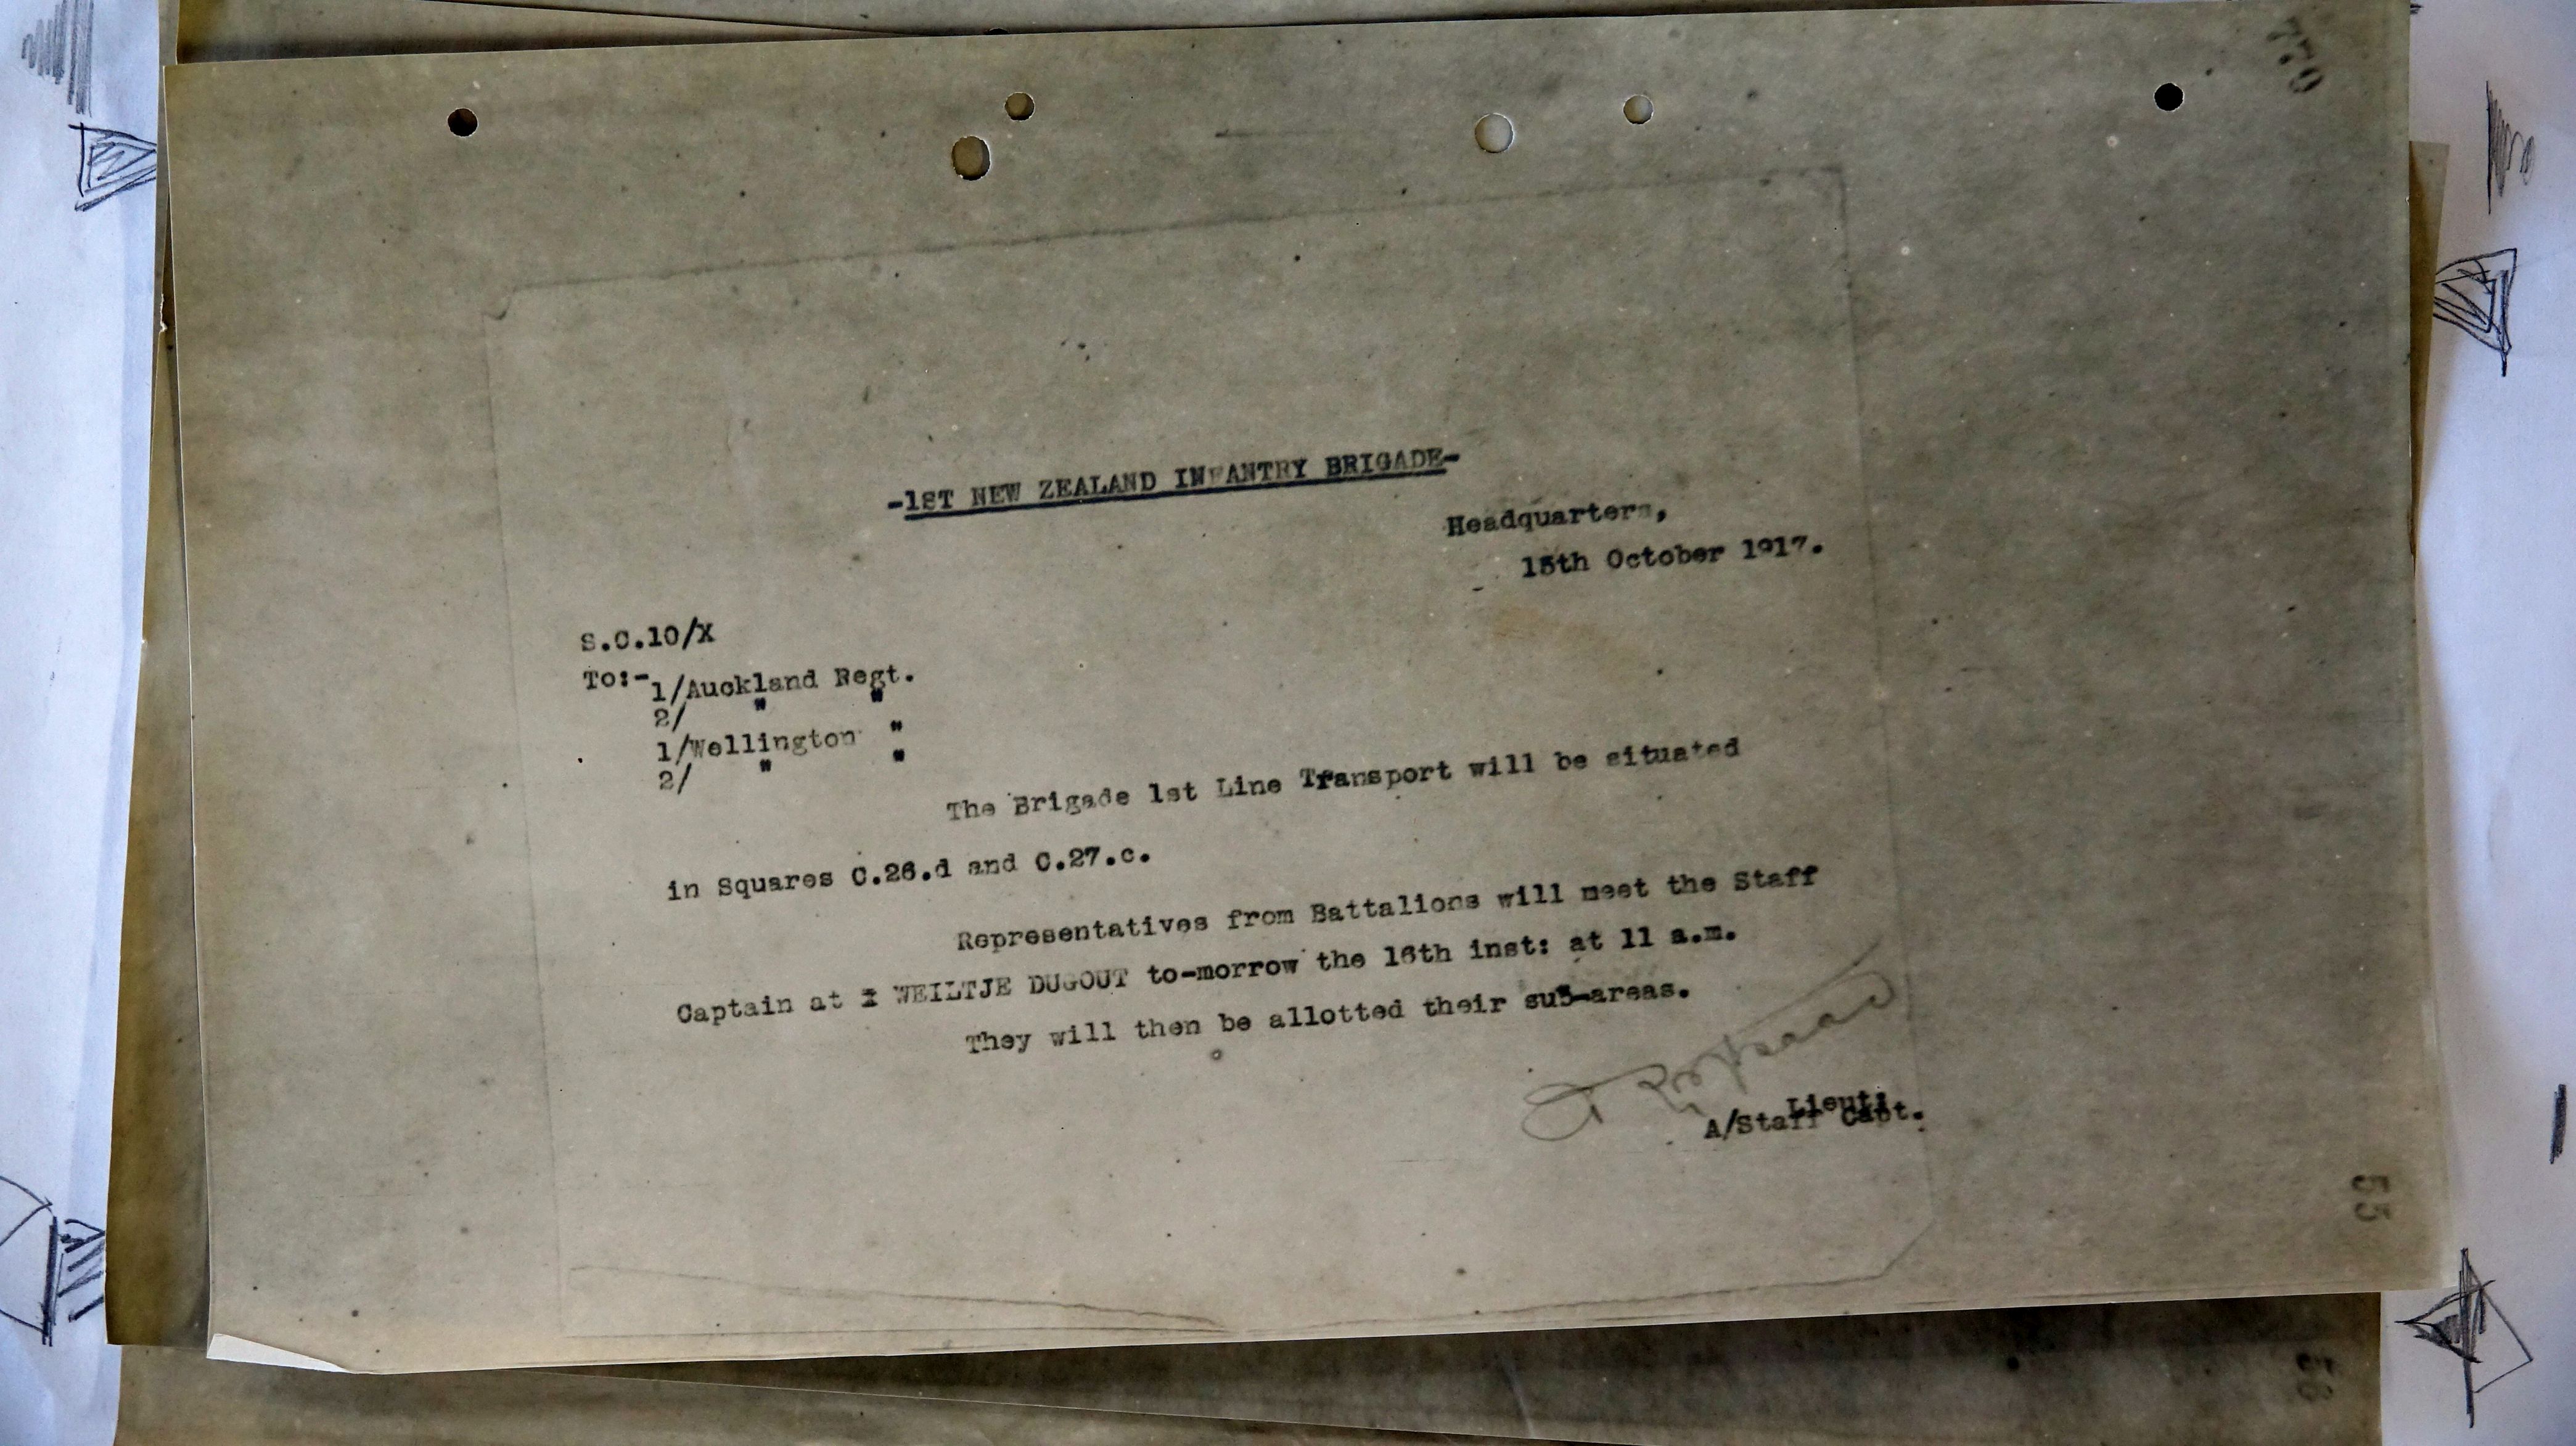 770
-1ST NEW ZEALAND INFANTRY BRIGADE-
Headquarters,
15th October 1917.
S.C.10/X
To:- 1/Auckland Regt.
2/ " "
1/Wellington "
2/ " "
The Brigade 1st Line Transport will be situated
in Squares C.26.d and C.27.c.
Representatives from Battalions will meet the Staff
Captain at WEILTJE DUGOUT to-morrow the 16th inst: at 11 a.m.
They will then be allotted their sub-areas.
Lieut:
A/Staff Capt.
55